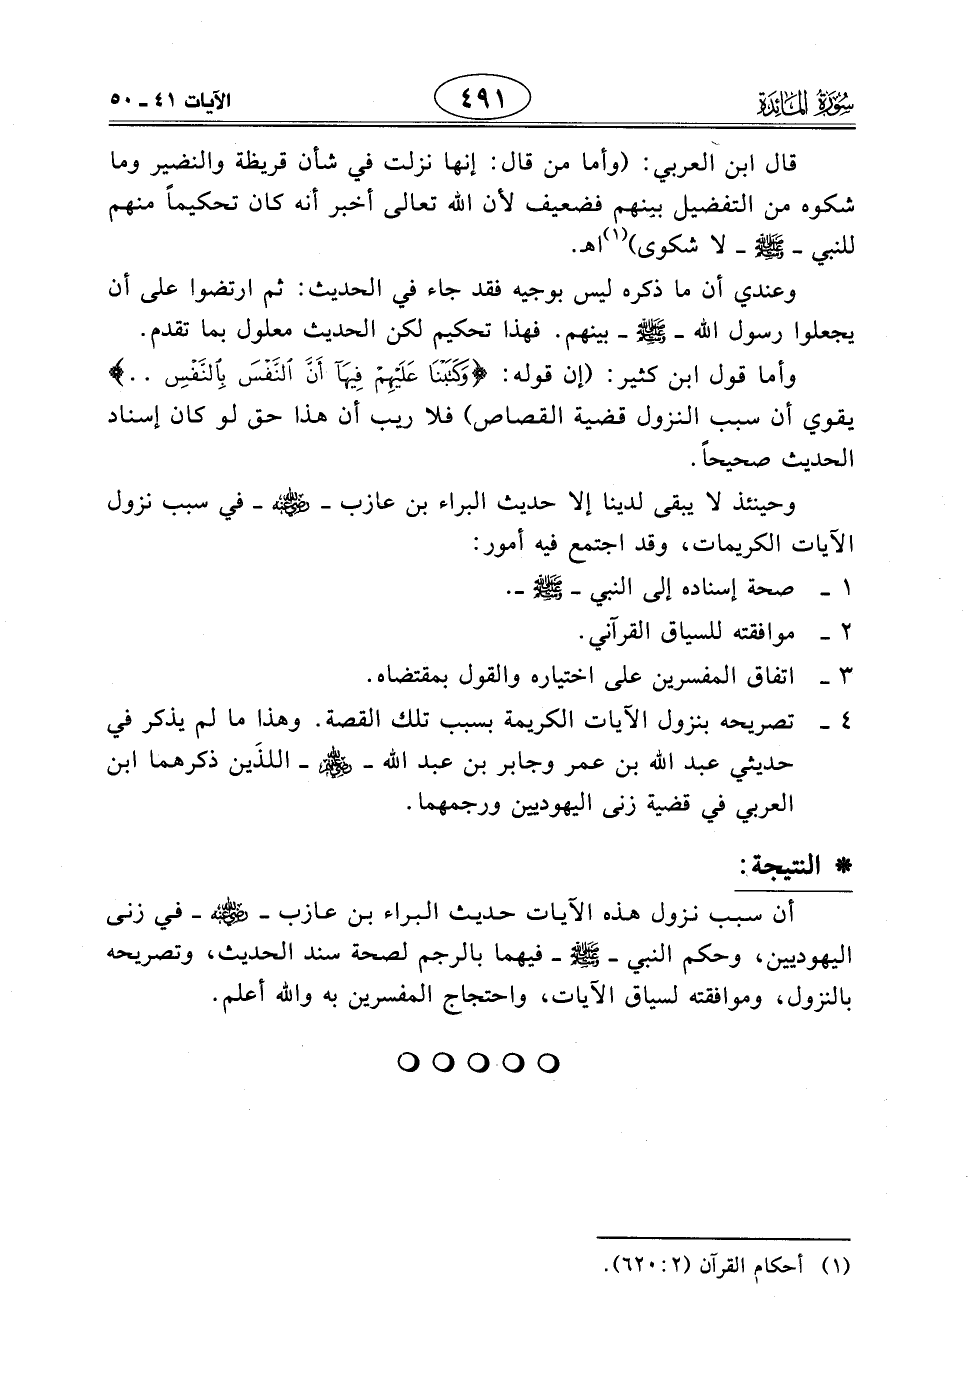 سورة المائدة ٤٩١ الآيات ٤١ ـ ٥٠
قال ابن العربي: (وأما من قال: إنها نزلت في شأن قريظة والنضير وما
شكوه من التفضيل بينهم فضعيف لأن الله تعالى أخبر أنه كان تحكيماً منهم
للنبي ـ ﷺ ـ لا شكوى)(١)اهـ.
وعندي أن ما ذكره ليس بوجيه فقد جاء في الحديث: ثم ارتضوا على أن
يجعلوا رسول الله ـ ﷺ ـ بينهم. فهذا تحكيم لكن الحديث معلول بما تقدم.
وأما قول ابن كثير: (إن قوله: ﴿وَكَتَبْنَا عَلَيْهِمْ فِيهَآ أَنَّ ٱلنَّفْسَ بِٱلنَّفْسِ ..﴾
يقوي أن سبب النزول قضية القصاص) فلا ريب أن هذا حق لو كان إسناد
الحديث صحيحاً.
وحينئذ لا يبقى لدينا إلا حديث البراء بن عازب ـ رضي الله عنه ـ في سبب نزول
الآيات الكريمات، وقد اجتمع فيه أمور:
١ ـ صحة إسناده إلى النبي ـ ﷺ ـ.
٢ ـ موافقته للسياق القرآني.
٣ ـ اتفاق المفسرين على اختياره والقول بمقتضاه.
٤ ـ تصريحه بنزول الآيات الكريمة بسبب تلك القصة. وهذا ما لم يذكر في
حديثي عبد الله بن عمر وجابر بن عبد الله ـ رضي الله عنهم ـ اللذَين ذكرهما ابن
العربي في قضية زنى اليهوديين ورجمهما.
* النتيجة:
أن سبب نزول هذه الآيات حديث البراء بن عازب ـ رضي الله عنه ـ في زنى
اليهوديين، وحكم النبي ـ ﷺ ـ فيهما بالرجم لصحة سند الحديث، وتصريحه
بالنزول، وموافقته لسياق الآيات، واحتجاج المفسرين به والله أعلم.
(١) أحكام القرآن (٢:٦٢٠).